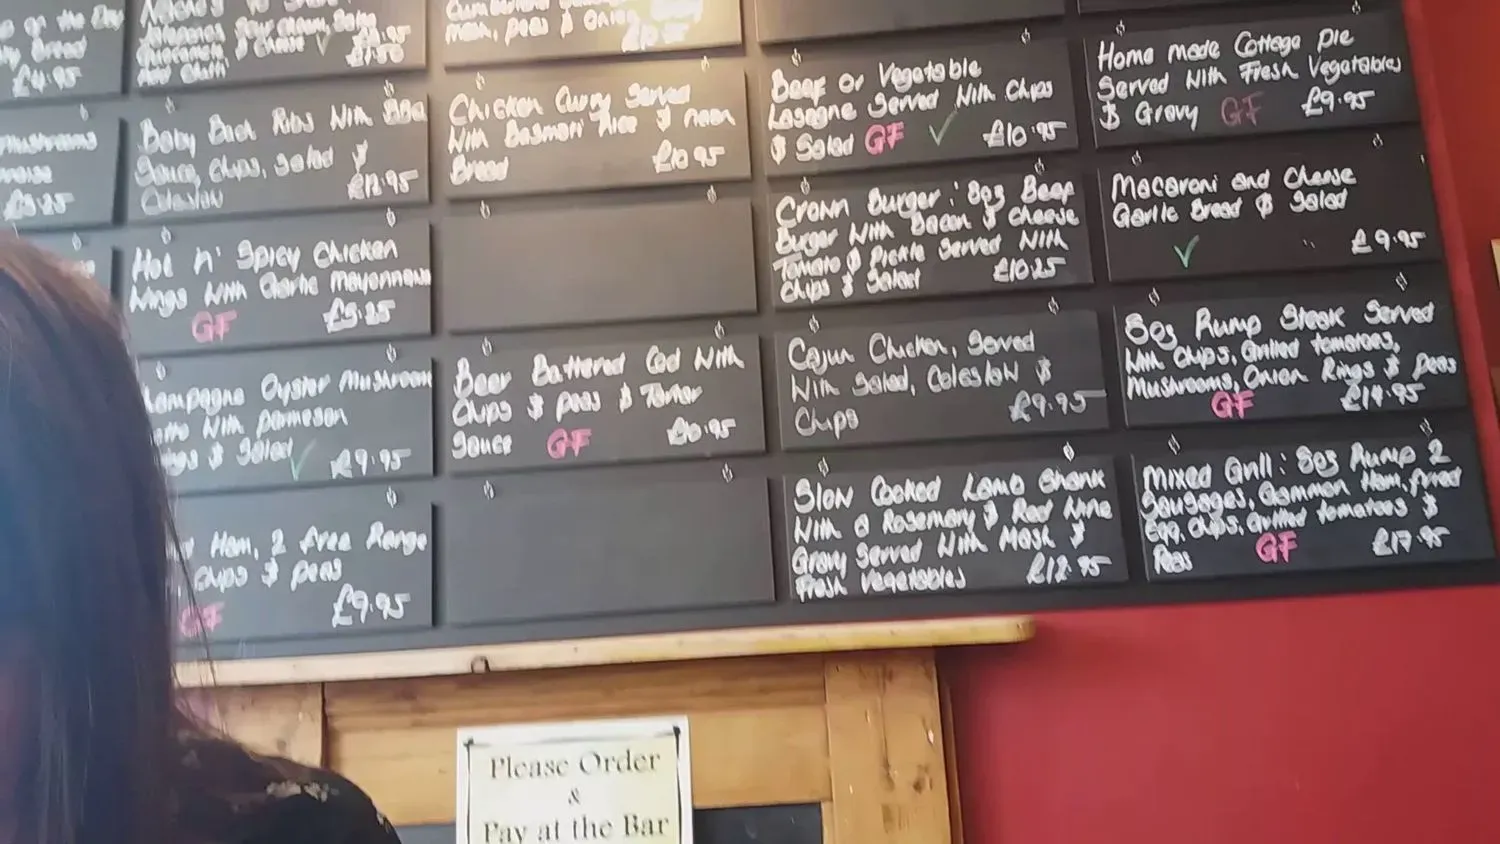 of the Day
Bread
£4.95
mushrooms
£5.25
Nachos
Jalapenos, Sour cream, Salsa
Guacamole & Cheese ✓
Add Chilli £1.50
Baby Back Ribs With BBQ
Sauce, Chips, Salad &
Coleslaw £12.95
Hot n' Spicy Chicken
Wings With Garlic Mayonnaise
GF £5.25
Oyster Mushroom
With Parmesan
& Salad ✓ £9.95
Ham, 2 Free Range
Chips & Peas
GF £9.95
Cumberland
Mash, Peas & Onion
Chicken Curry Served
With Basmati Rice & Naan
Bread £10.95
Beer Battered Cod With
Chips & Peas & Tartar
Sauce GF £10.95
Beef or Vegetable
Lasagne Served With Chips
& Salad GF ✓ £10.95
Crown Burger: 8oz Beef
Burger With Bacon & Cheese
Tomato & Pickle Served With
Chips & Salad £10.25
Cajun Chicken, Served
With Salad, Coleslaw &
Chips £9.95
Slow Cooked Lamb Shank
With a Rosemary & Red Wine
Gravy Served With Mash &
Fresh Vegetables £12.95
Home made Cottage Pie
Served With Fresh Vegetables
& Gravy GF £9.95
Macaroni and Cheese
Garlic Bread & Salad
✓ £9.95
8oz Rump Steak Served
With Chips, Grilled tomatoes,
Mushrooms, Onion Rings & Peas
GF £14.95
Mixed Grill: 8oz Rump 2
Sausages, Gammon Ham, Fried
Egg, Chips, Grilled tomatoes &
Peas GF £17.95
Please Order
&
Pay at the Bar